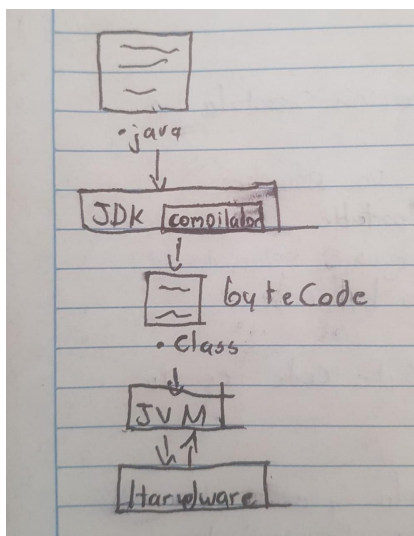 .java
JDK compilador
byteCode
.Class
JVM
Hardware